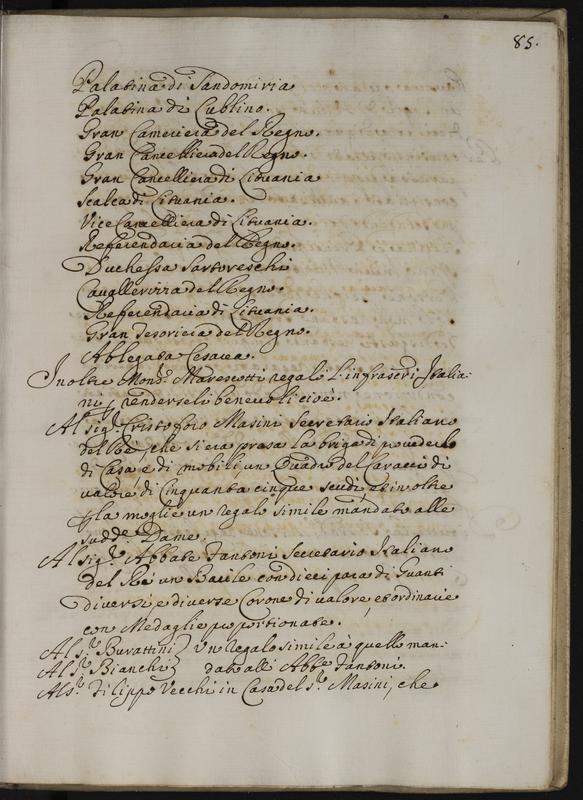 85.
Palatina di Sandomiria
Palatina di Lublino.
Gran Cameriera del Regno.
Gran Cancelliera del Regno.
Gran Cancelliera di Lituania
Scalca di Lituania.
Vice Cancelliera di Lituania.
Referendaria del Regno.
Duchessa Sartoreschi
Cavallerizza del Regno.
Referendaria di Lituania.
Gran Tesoriera del Regno.
Ablegata Cesarea.
Inoltre Mons.r Marescotti regalò l'infrascri. Italia-
ni p renderseli benevoli cioè.
Al sig.r Cristoforo Masini Secretario Italiano
del Rè, che si era presa la briga di provederlo
di Casa e di mobili un Quadro del Caracci di
valore di Cinquanta cinque scudi et in oltre
p la moglie un regalo simile mandato alle
sudd.e Dame.
Al sig.r Abbate Fantoni Secretario Italiano
del Rè un Bacile con dieci para di Guanti
diversi e diverse Corone di valore, et ordinarie
con Medaglie proportionate.
Al s.r Burattini } Un regalo simile à quello man-
Al s.r Bianchi } dato all' Abb.e Fantoni.
Al s.r Filippo Vecchi in Casa del s.r Masini, che